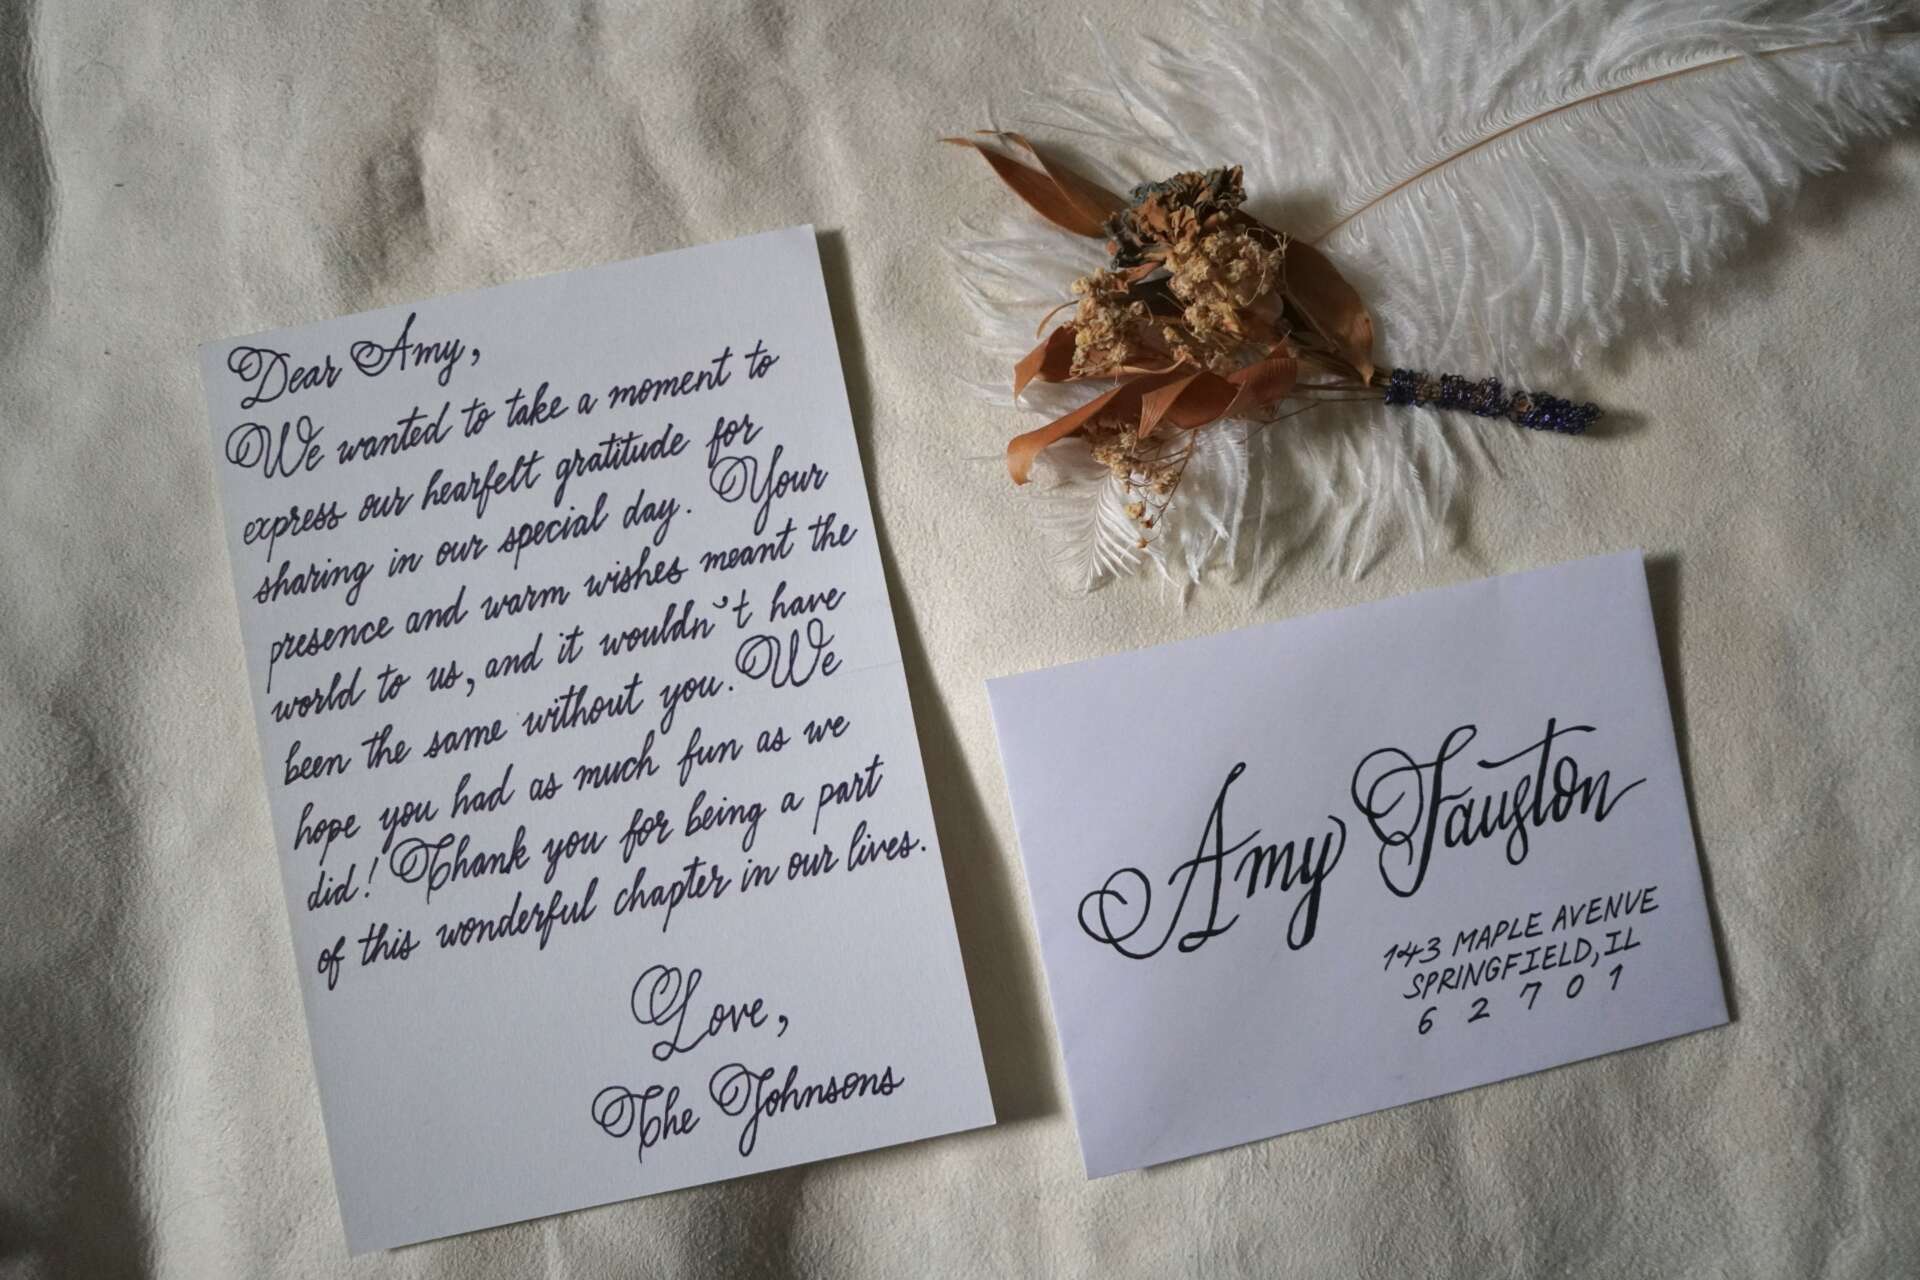 Dear Amy,
We wanted to take a moment to
express our hearfelt gratitude for
sharing in our special day. Your
presence and warm wishes meant the
world to us, and it wouldn't have
been the same without you. We
hope you had as much fun as we
did! Thank you for being a part
of this wonderful chapter in our lives.
Love,
The Johnsons
Amy Fauston
143 MAPLE AVENUE
SPRINGFIELD, IL
6 2 7 0 1